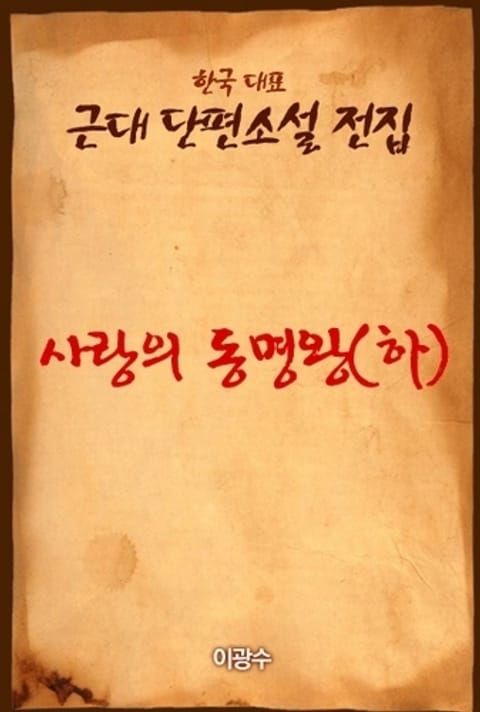 한국 대표
근대 단편소설 전집
사랑의 동명왕(하)
이광수